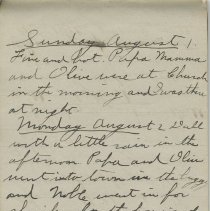 Sunday August 1.
Fine and hot. Papa Mamma
and Olive were at Church
in the morning and I was there
at night.
Monday August 2. Dull
with a little rain in the
afternoon. Papa and Olive
went into town in the buggy
and Noble went in for